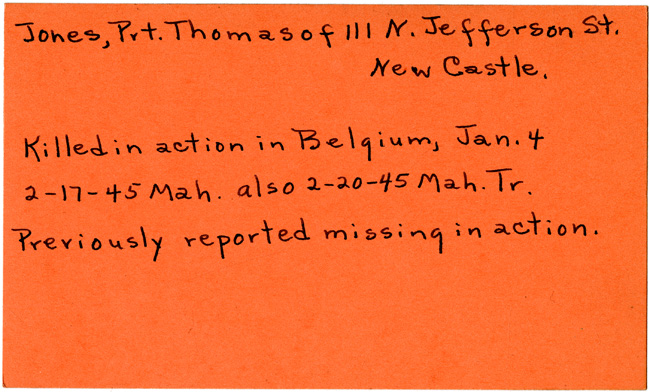 Jones, Pvt. Thomas of 111 N. Jefferson St.
New Castle.
Killed in action in Belgium, Jan. 4
2-17-45 Mah. also 2-20-45 Mah. Tr.
Previously reported missing in action.